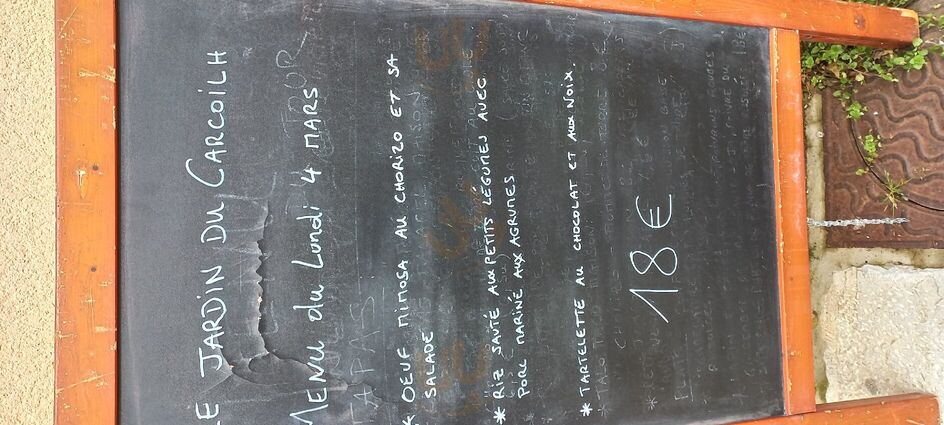 LE JARDIN DU CARCOILH
MENU du Lundi 4 MARS
TAPAS
* OEUF MIMOSA AU CHORIZO ET SA
SALADE
* RIZ SAUTÉ AUX PETITS LÉGUMES AVEC
PORC MARINÉ AUX AGRUMES
* TARTELETTE AU CHOCOLAT ET AUX NOIX.
18€